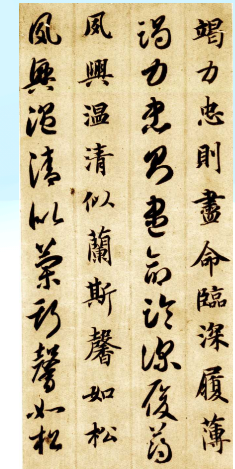 竭力忠則盡命臨深履薄
竭力忠則盡命臨深履薄
夙興温凊似蘭斯馨如松
夙興温清似蘭斯馨如松